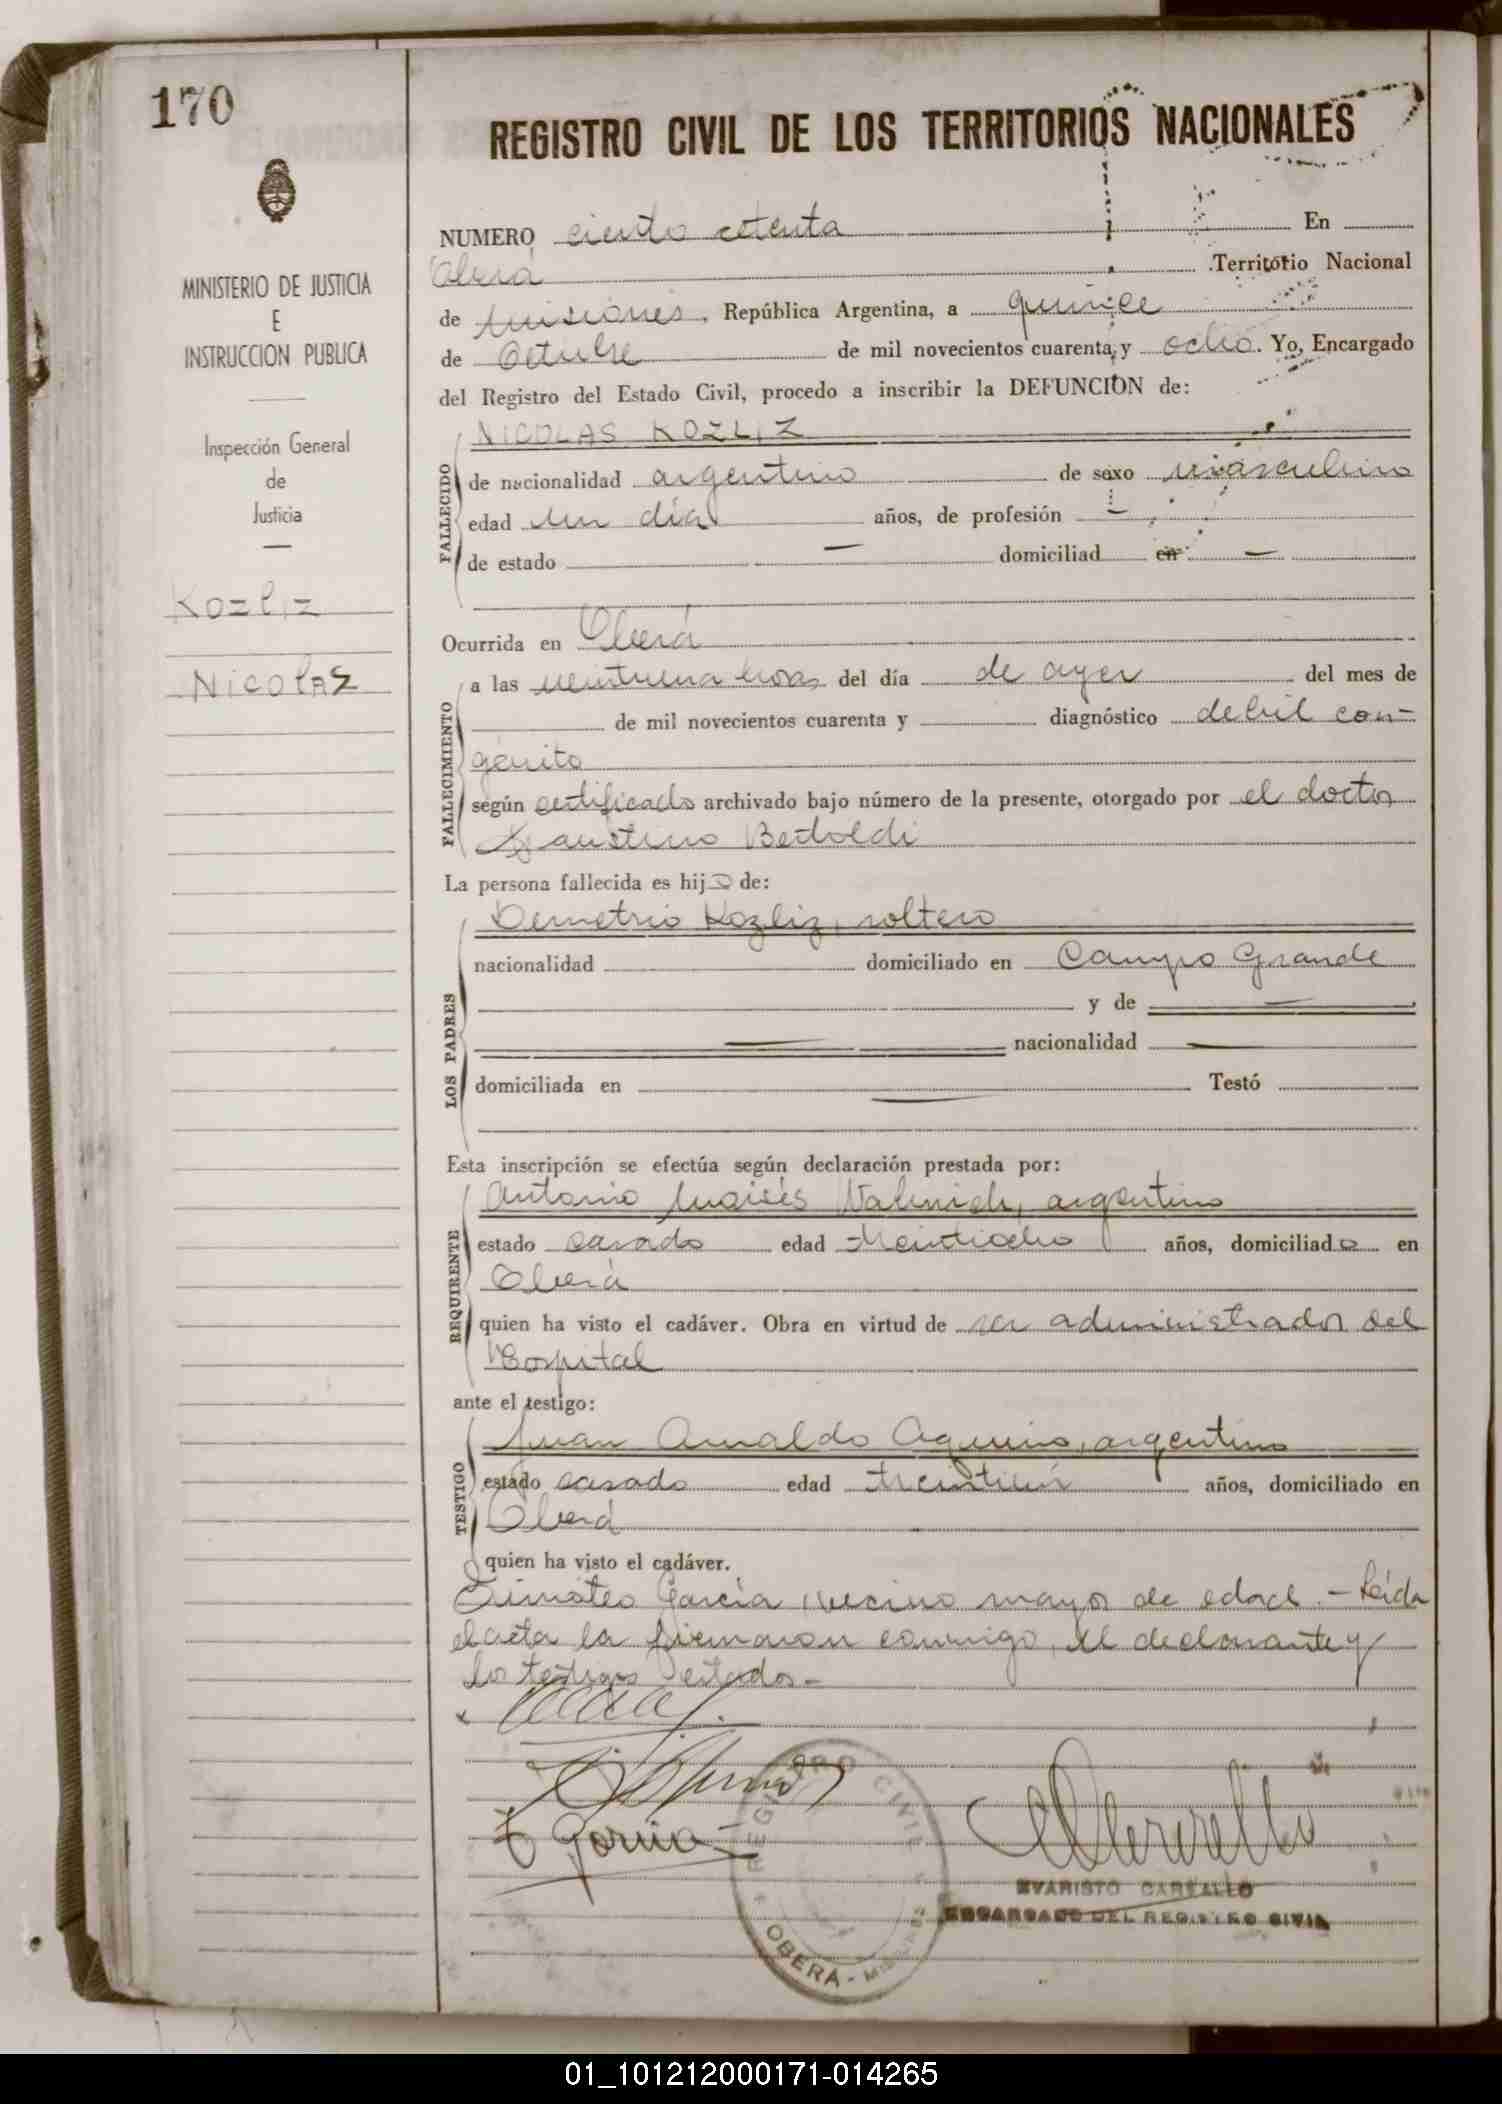 170
REGISTRO CIVIL DE LOS TERRITORIOS NACIONALES
MINISTERIO DE JUSTICIA
E
INSTRUCCION PUBLICA
Inspección General
de
Justicia
Kozliz
Nicolas
NUMERO ciento cetenta En
Oberá Territorio Nacional
de Misiones, República Argentina, a quince
de Octubre de mil novecientos cuarenta y ocho. Yo, Encargado
del Registro del Estado Civil, procedo a inscribir la DEFUNCION de:
FALLECIDO
NICOLAS KOZLIZ
de nacionalidad argentino de sexo masculino
edad un día años, de profesión —
de estado — domiciliad en —
Ocurrida en Oberá
FALLECIMIENTO
a las veintiuna horas del día de ayer del mes de
de mil novecientos cuarenta y diagnóstico debil con-
génito
según certificado archivado bajo número de la presente, otorgado por el doctor
Faustino Bertoldi
La persona fallecida es hijo de:
LOS PADRES
Demetrio Kozliz, soltero
nacionalidad domiciliado en Campo Grande
y de —
— nacionalidad —
domiciliada en — Testó
Esta inscripción se efectúa según declaración prestada por:
REQUIRENTE
Antonio Moisés argentino
estado casado edad años, domiciliado en
Oberá
quien ha visto el cadáver. Obra en virtud de ser administrador del
Hospital
ante el testigo:
TESTIGO
Juan Arnaldo Aquino, argentino
estado casado edad treintiún años, domiciliado en
Oberá
quien ha visto el cadáver.
Timóteo García, vecino mayor de edad. - Leída
el acta la firmaron conmigo, el declarante y
los testigos citados -
T Garcia
REGISTRO CIVIL
OBERÁ - MISIONES
EVARISTO CARBALLO
ENCARGADO DEL REGISTRO CIVIL
01_101212000171-014265